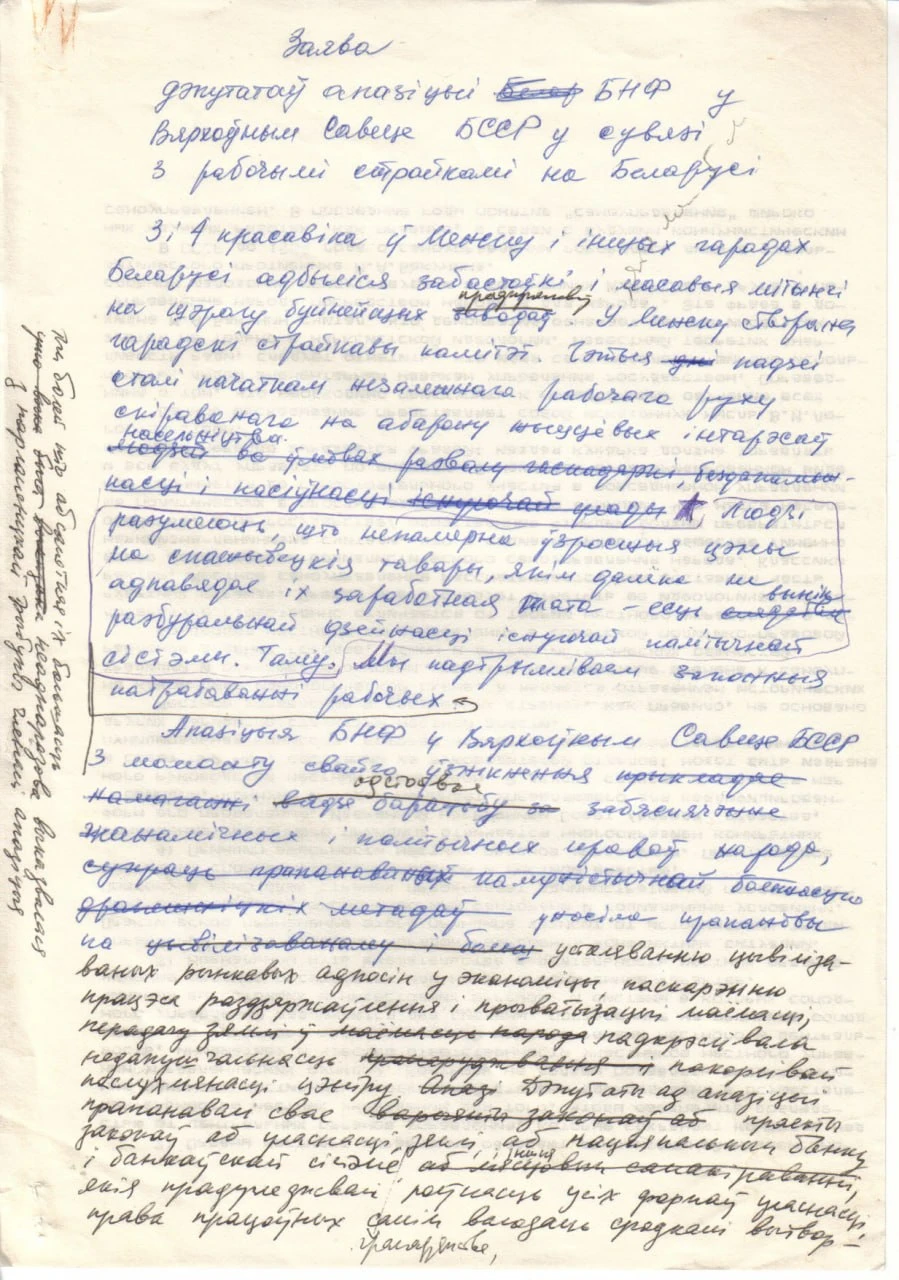 Заява
дэпутатаў апазіцыі БНФ у
Вярхоўным Савеце БССР у сувязі
з рабочымі страйкамі на Беларусі
3 і 4 красавіка ў Менску і іншых гарадах
Беларусі адбыліся забастоўкі і масавыя мітынгі
прадпрыемстваў
на шэрагу буйнейшых заводаў У Менску створаны
гарадскі страйкавы камітэт. Гэтыя дні падзеі
сталі пачаткам незалежнага рабочага руху
скіраванага на абарону жыццёвых інтарэсаў
насельніцтва.
людзей ва ўмовах развалу гаспадаркі, бездапамож-
насці і існуючай улады Людзі
разумеюць, што непамерна ўзросшыя цэны
на спажывецкія тавары, якім далёка не
адпавядае іх заработная плата – ёсць вынік
разбуральнай дзейнасці існуючай палітычнай
сістэмы. Таму. Мы падтрымліваем законныя
патрабаванні рабочых.
Апазіцыя БНФ у Вярхоўным Савеце БССР
з моманту свайго ўзнікнення прыкладае
намаганні вядзе барацьбу за забяспячэнне
эканамічных і палітычных правоў народа,
супраць прапанаваных камуністычнай большасцю
метадаў уносіла прапановы
па цывілізаванаму і больш усталяванню цывіліза-
ваных рынкавых адносін у эканоміцы, паскарэнню
працэса раздзяржаўлення і прыватызацыі маёмасці,
перадачу зямлі ў маёмасць народа падкрэслівала
недапушчальнасць і пакорлівай
паслухмянасці цэнтру Апазі Дэпутаты ад апазіцыі
прапанавалі свае варыянты законаў аб праекты
законаў аб уласнасці, зямлі, аб нацыянальным банку
і банкаўскай сістэме аб мясцовым самакіраванні,
якія прадугледжвалі роўнасць усіх формаў уласнасці
права працоўных самім валодаць сродкамі вытвор-
грамадзянства,
тым болей што абсалютная іх большасць
ужо неаднаразова выказвалася
з парламенцкай трыбуны членамі апазіцыі